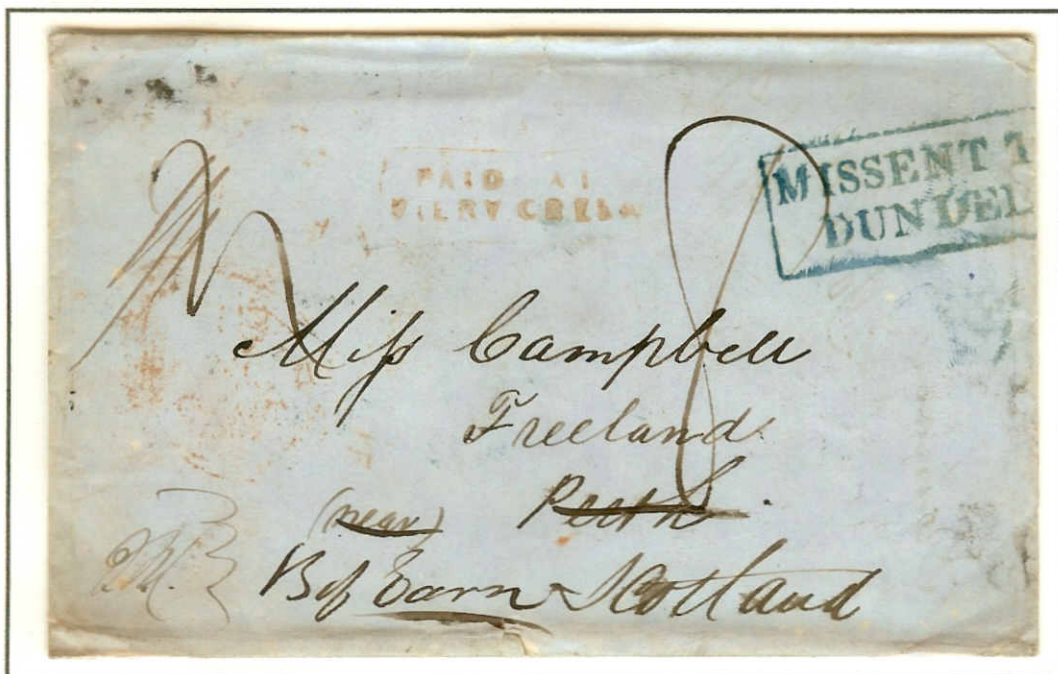 PAID AT
MISSENT T
DUNDEE
8
Miss Campbell
Freeland
(near) Perth.
B of Earn Scotland